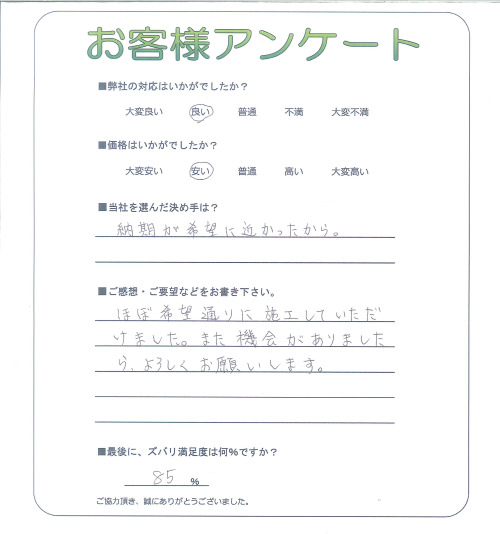 お客様アンケート
■弊社の対応はいかがでしたか？
大変良い 良い 普通 不満 大変不満
■価格はいかがでしたか？
大変安い 安い 普通 高い 大変高い
■当社を選んだ決め手は？
納期が希望に近かったから。
■ご感想・ご要望などをお書き下さい。
ほぼ希望通りに施工していただ
けました。また機会がありました
ら、よろしくお願いします。
■最後に、ズバリ満足度は何％ですか？
85 ％
ご協力頂き、誠にありがとうございました。